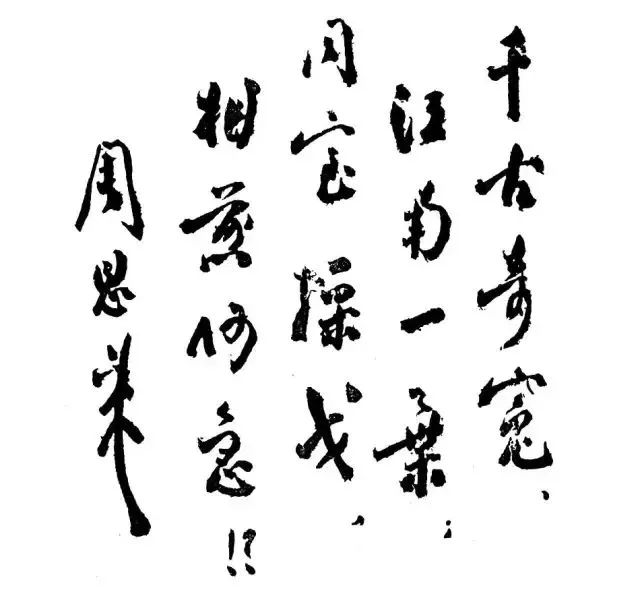 千古奇寃、
江南一葉；
同室操戈，
相煎何急!?
周恩来